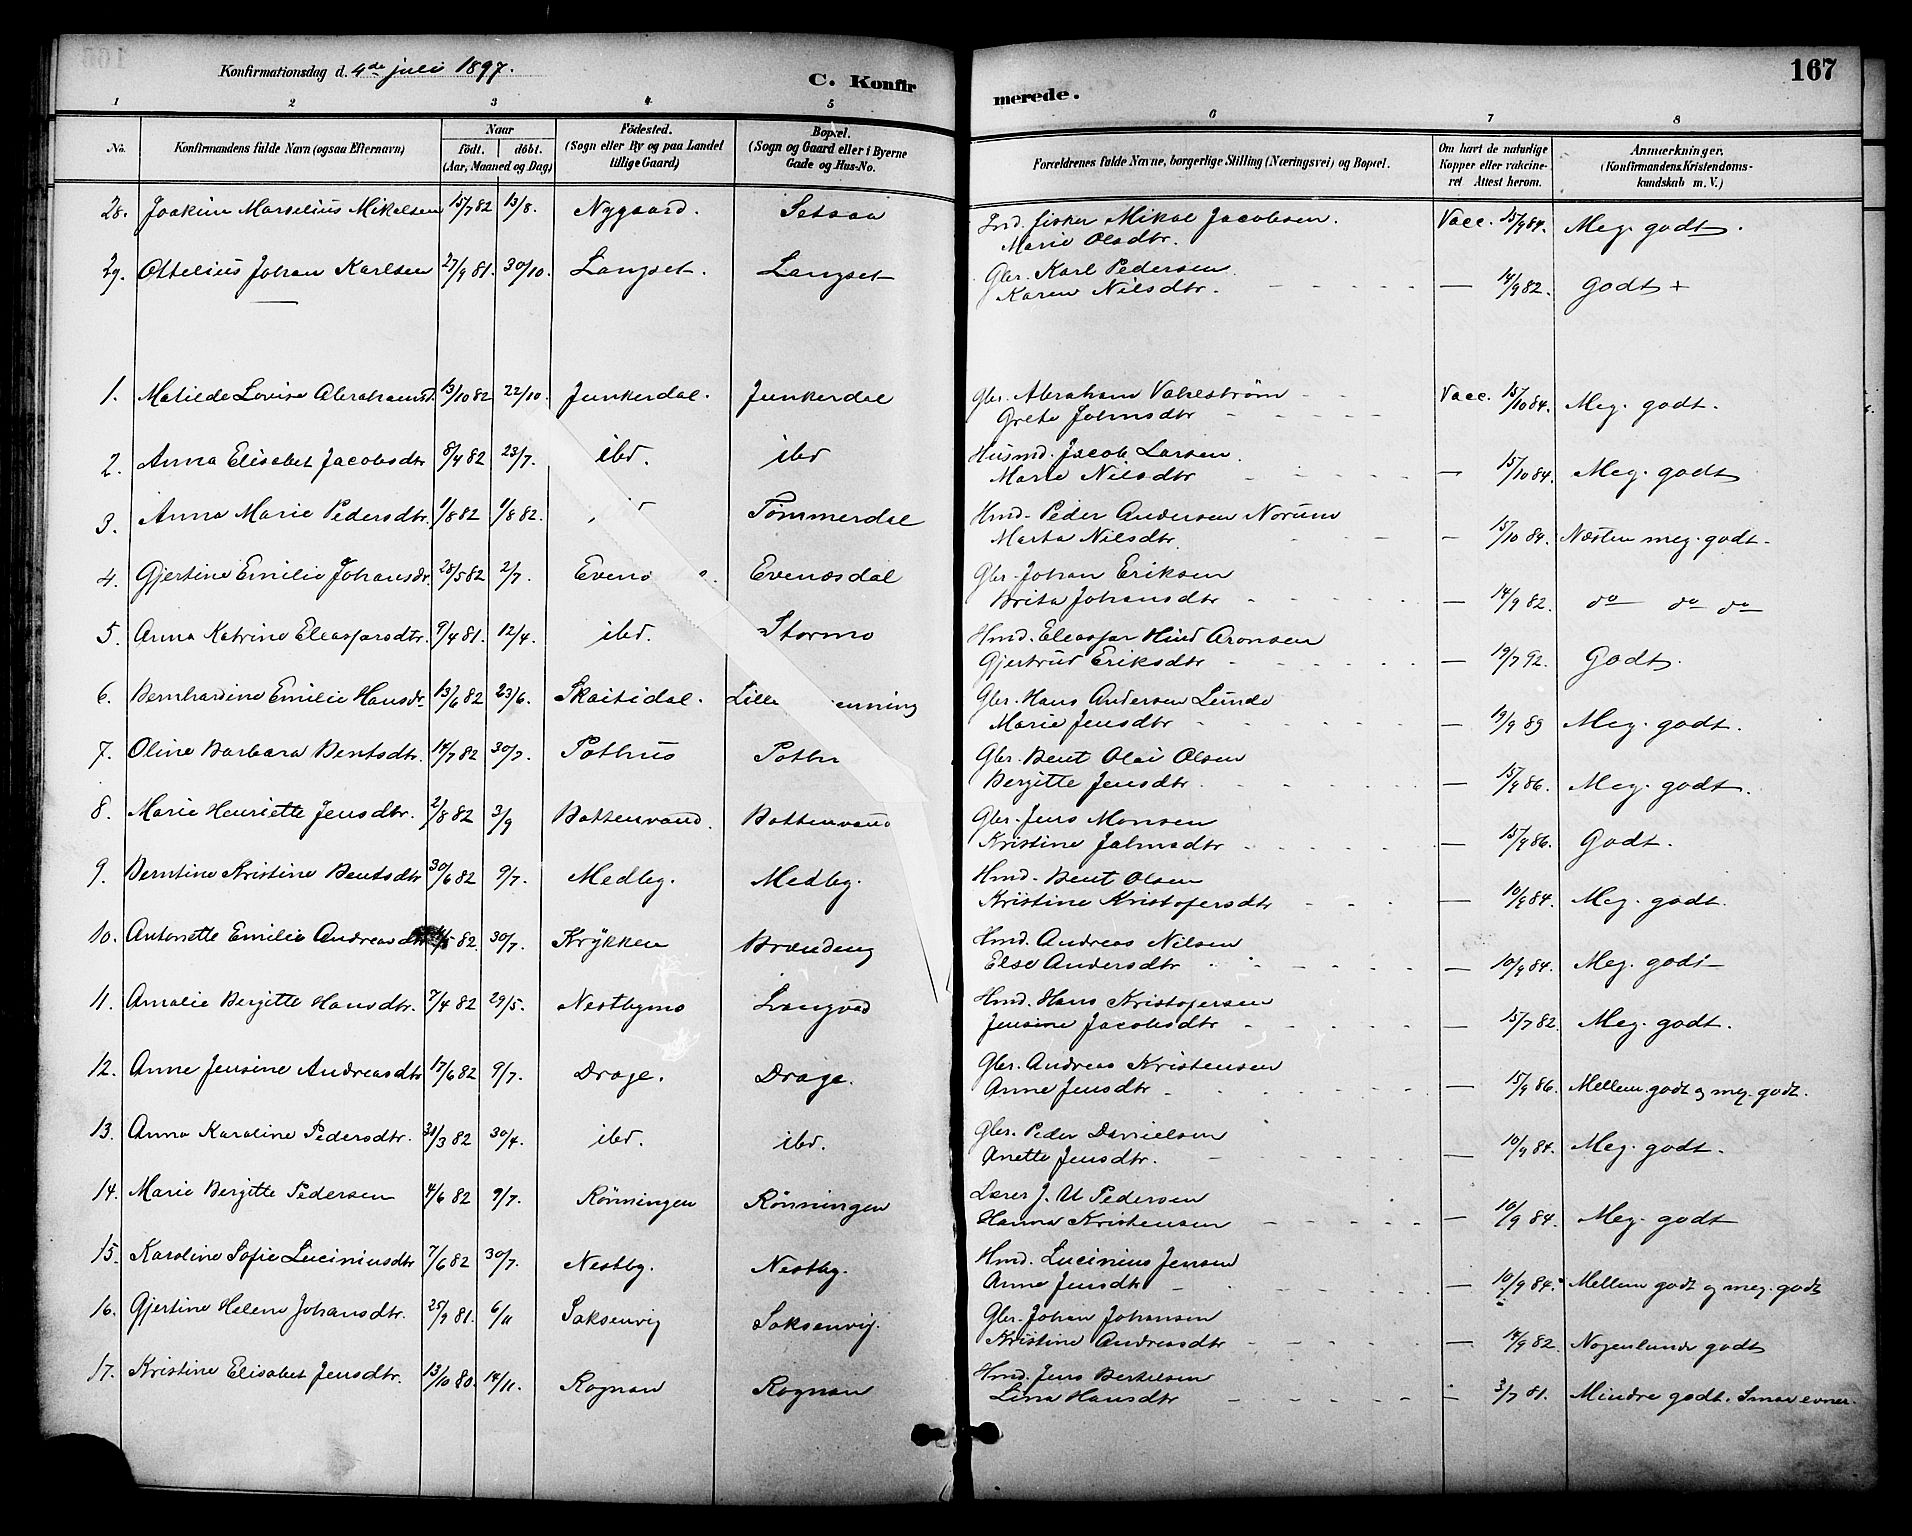 Konfirmationsdag d. 4de juli 1897.
C. Konfir
merede.
167
1 2 3 4 5 6 7 8
No. Konfirmandens fulde Navn (ogsaa Efternavn) Naar födt. döbt. (Aar, Maaned og Dag) Födested. (Sogn eller By og paa Landet tillige Gaard) Bopæl. (Sogn og Gaard eller i Byerne Gade og Hus-No. Forældrenes fulde Navne, borgerlige Stilling (Næringsvei) og Bopæl. Om havt de naturlige Kopper eller vakcineret Attest herom. Anmærkninger. (Konfirmandens Kristendomskundskab m. V.)
28. Joakim Marselius Mikelsen 15/7 82 13/8. Nygaard. Setsaa Ind. fisker Mikal Jacobsen. Vacc. 15/9 84. Meg. godt.
Marie Olsdtr.
29. Ottelius Johan Karlsen 27/9 81. 30/10. Langset. Langset Gbr. Karl Pedersen
Karen Nilsdtr. — 14/9 82. Godt +
1. Matilde Lovise Abrahamsd. 13/10 82 22/10. Junkerdal. Junkerdal Gbr. Abraham Valestrøm Vacc. 15/10 84. Meg. godt.
Grete Johnsdtr
2. Anna Elisabet Jacobsdtr 8/4 82 23/7. ibd. ibd Husmd. Jacob Larsen
Marie Nilsdtr — 15/10 84. Meg. godt
3. Anna Marie Pedersdtr. 1/8 82 1/8 82. Tömmerdal Hmd. Peder Andersen Norum
Marta Nilsdtr. — 15/10 84. Næsten meg. godt.
4. Gjertine Emilie Johansdr. 28/5 82 2/7. Evenesdal Gbr. Johan Eriksen
Brita Johansdtr — 14/9 82. do do do
5. Anna Katrine Eleasarsdtr. 9/4 81. 12/4. ibd. Stormo Hmd. Eleasar Hind Aronsen
Gjertrud Eriksdtr — 19/7 92. Godt.
6. Bernhardine Emilie Hansdr 13/6 82 23/6. Skaitidal. Gbr. Hans Andersen Lunde
Marie Jensdtr — 19/9 89 Meg. godt.
7. Oline Barbara Bentsdtr. 14/7 82 30/7. Pothus Gbr. Bent Olai Olsen
Bergitte Jensdtr. — 15/9 86. Meg. godt.
8. Marie Henriette Jensdtr. 2/8 82 3/9 Bottenvand. Bottenvand Gbr. Jens Monsen
Kristine Johnsdtr — 15/9 86. Godt.
9. Berntine Kristine Bentsdtr 30/6 82 9/7. Medby. Medby. Hmd. Bent Olsen
Kristine Kristofersdtr — 10/9 84. Meg. godt.
10. Antonette Emilie Andreasdtr /5 82 30/7. Krykken Brændeng Hmd. Andreas Nilsen
Else Andersdtr — 10/9 84. Meg. godt
11. Amalie Bergitte Hansdtr. 7/4 82 29/5. Nestbymo Langvad Hmd. Hans Kristofersen
Jensine Jacobsdtr — 15/7 82. Meg. godt.
12. Anne Jensine Andreasdtr 17/6 82 9/7. Drage. Drage. Gbr. Andreas Kristensen
Anne Jensdtr — 15/9 86. Mellem godt og meg. godt.
13. Anna Karoline Pedersdtr. 31/3 82 30/4. ibd. ibd. Gbr. Peder Danielsen
Anette Jensdtr. — 10/9 84. Meg. godt.
14. Marie Bergitte Pedersen 4/6 82 9/7. Rönningen Rönningen Lærer J. U Pedersen
Hanna Kristensen — 10/9 84. Meg. godt
15. Karoline Sofie Luciniusdtr 7/6 82 30/7. Nestby. Nestby. Hmd. Lucinius Jensen
Anne Jensdtr — 10/9 84. Mellem godt og meg. godt
16. Gjertine Helene Johansdtr. 25/9 81. 6/11 Saksenvig Saksenvig. Gbr. Johan Johansen
Kristine Andreasdtr — 14/9 82. Nogenlunde godt
17. Kristine Elisabet Jensdtr. 13/10 80. 14/11. Rognan Rognan Hmd. Jens Bertelsen
Lina Hansdtr — 3/7 81. Mindre godt. Smaa evner.